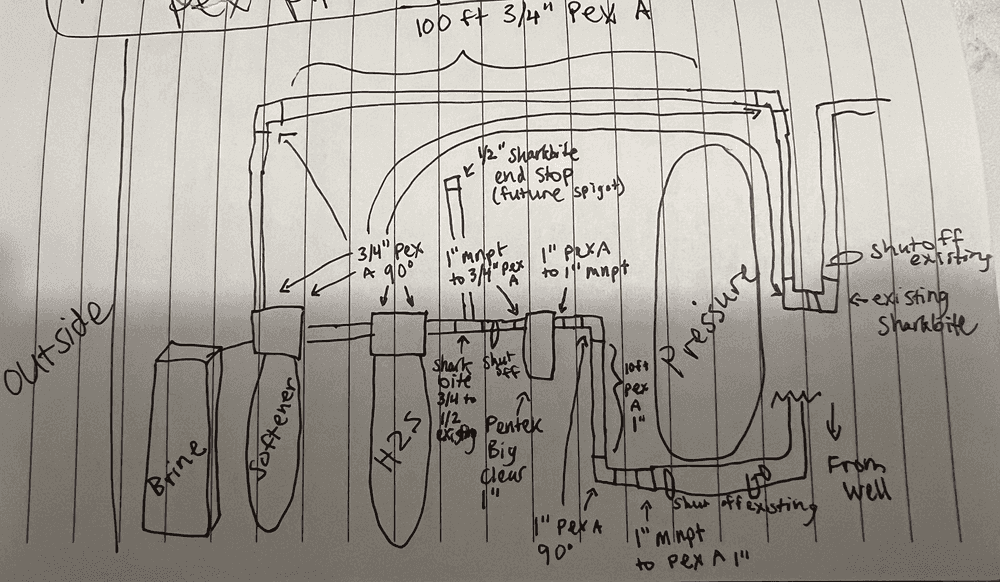 Pex
100 ft 3/4" Pex A
1/2" sharkbite
end stop
(future spigot)
3/4" Pex
A 90°
1" mnpt
to 3/4" Pex
A
1" PexA
to 1" mnpt
Pressure
shutoff
existing
existing
sharkbite
Outside
Brine
Softener
H2S
shark
bite
3/4 to
1/2
existing
shut
off
Pentek
Big
Clear
1"
10ft
Pex
A
1"
From
Well
shut off existing
1" Pex A
90°
1" mnpt
to pex A 1"